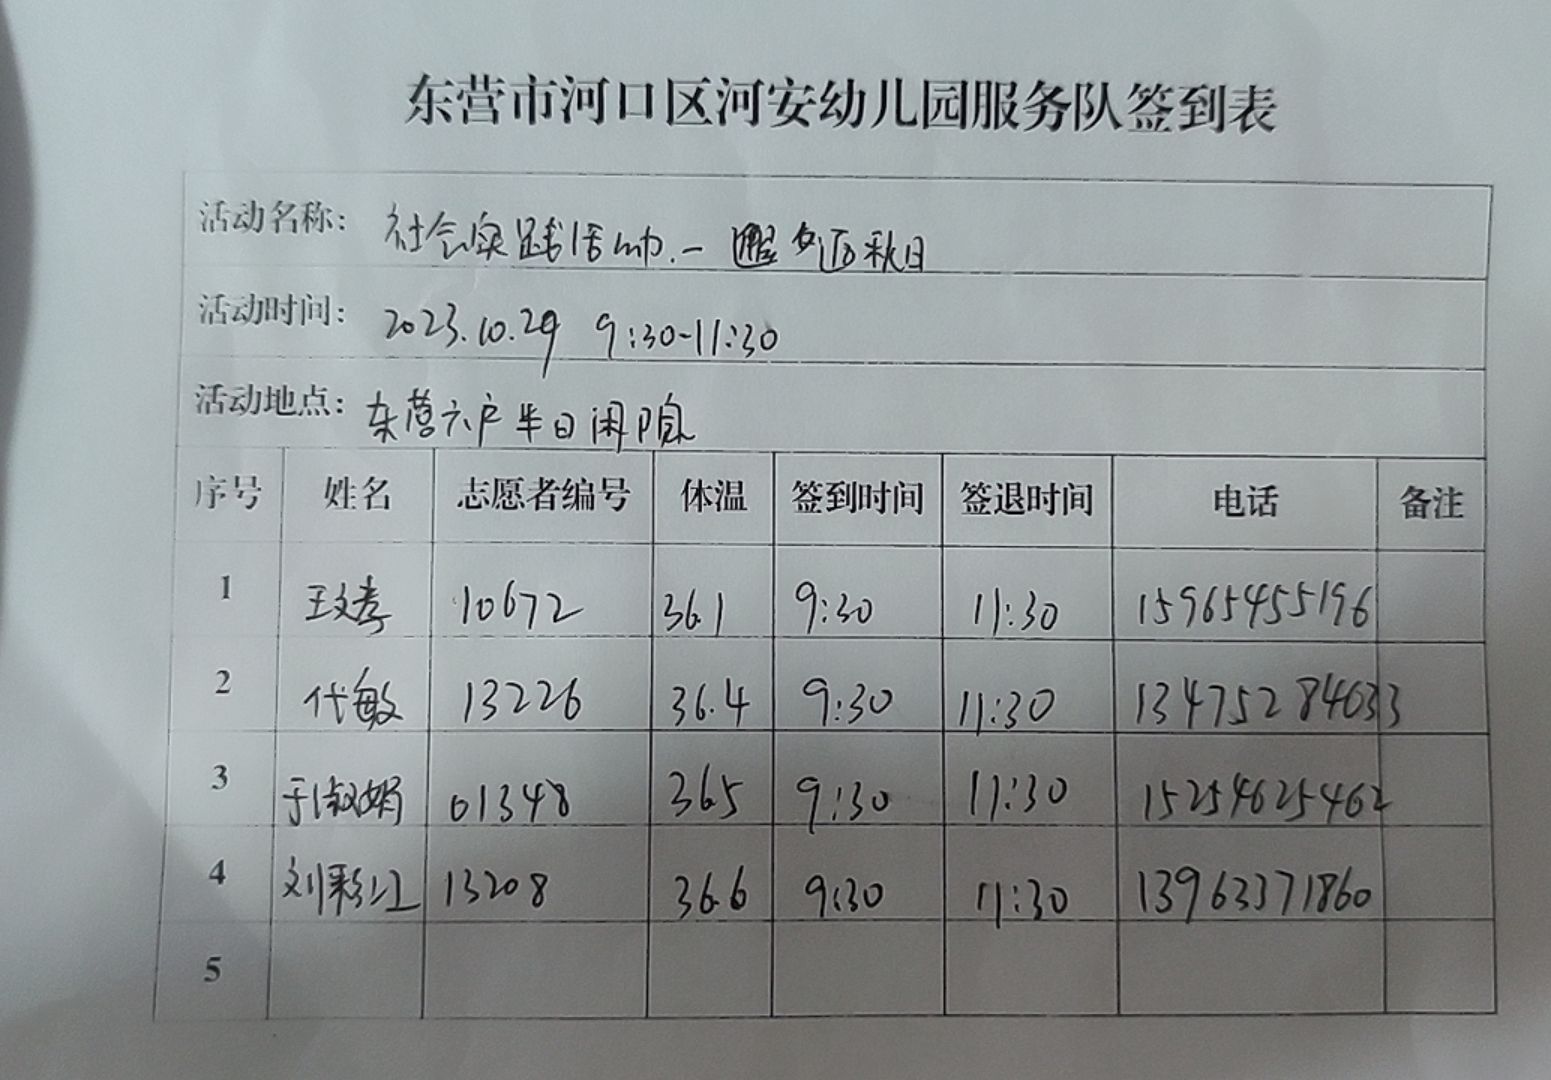 东营市河口区河安幼儿园服务队签到表
活动名称： 社会实践活动.一 邂 逅秋日
活动时间： 2023.10.29 9:30-11:30
活动地点： 东营六户半日闲
序号 姓名 志愿者编号 体温 签到时间 签退时间 电话 备注
1 王文孝 10672 36.1 9:30 11:30 15965455196
2 代敏 13226 36.4 9:30 11:30 13475284633
3 于淑娟 01348 36.5 9:30 11:30 15254625462
4 刘彩江 13208 36.6 9:30 11:30 13963371860
5